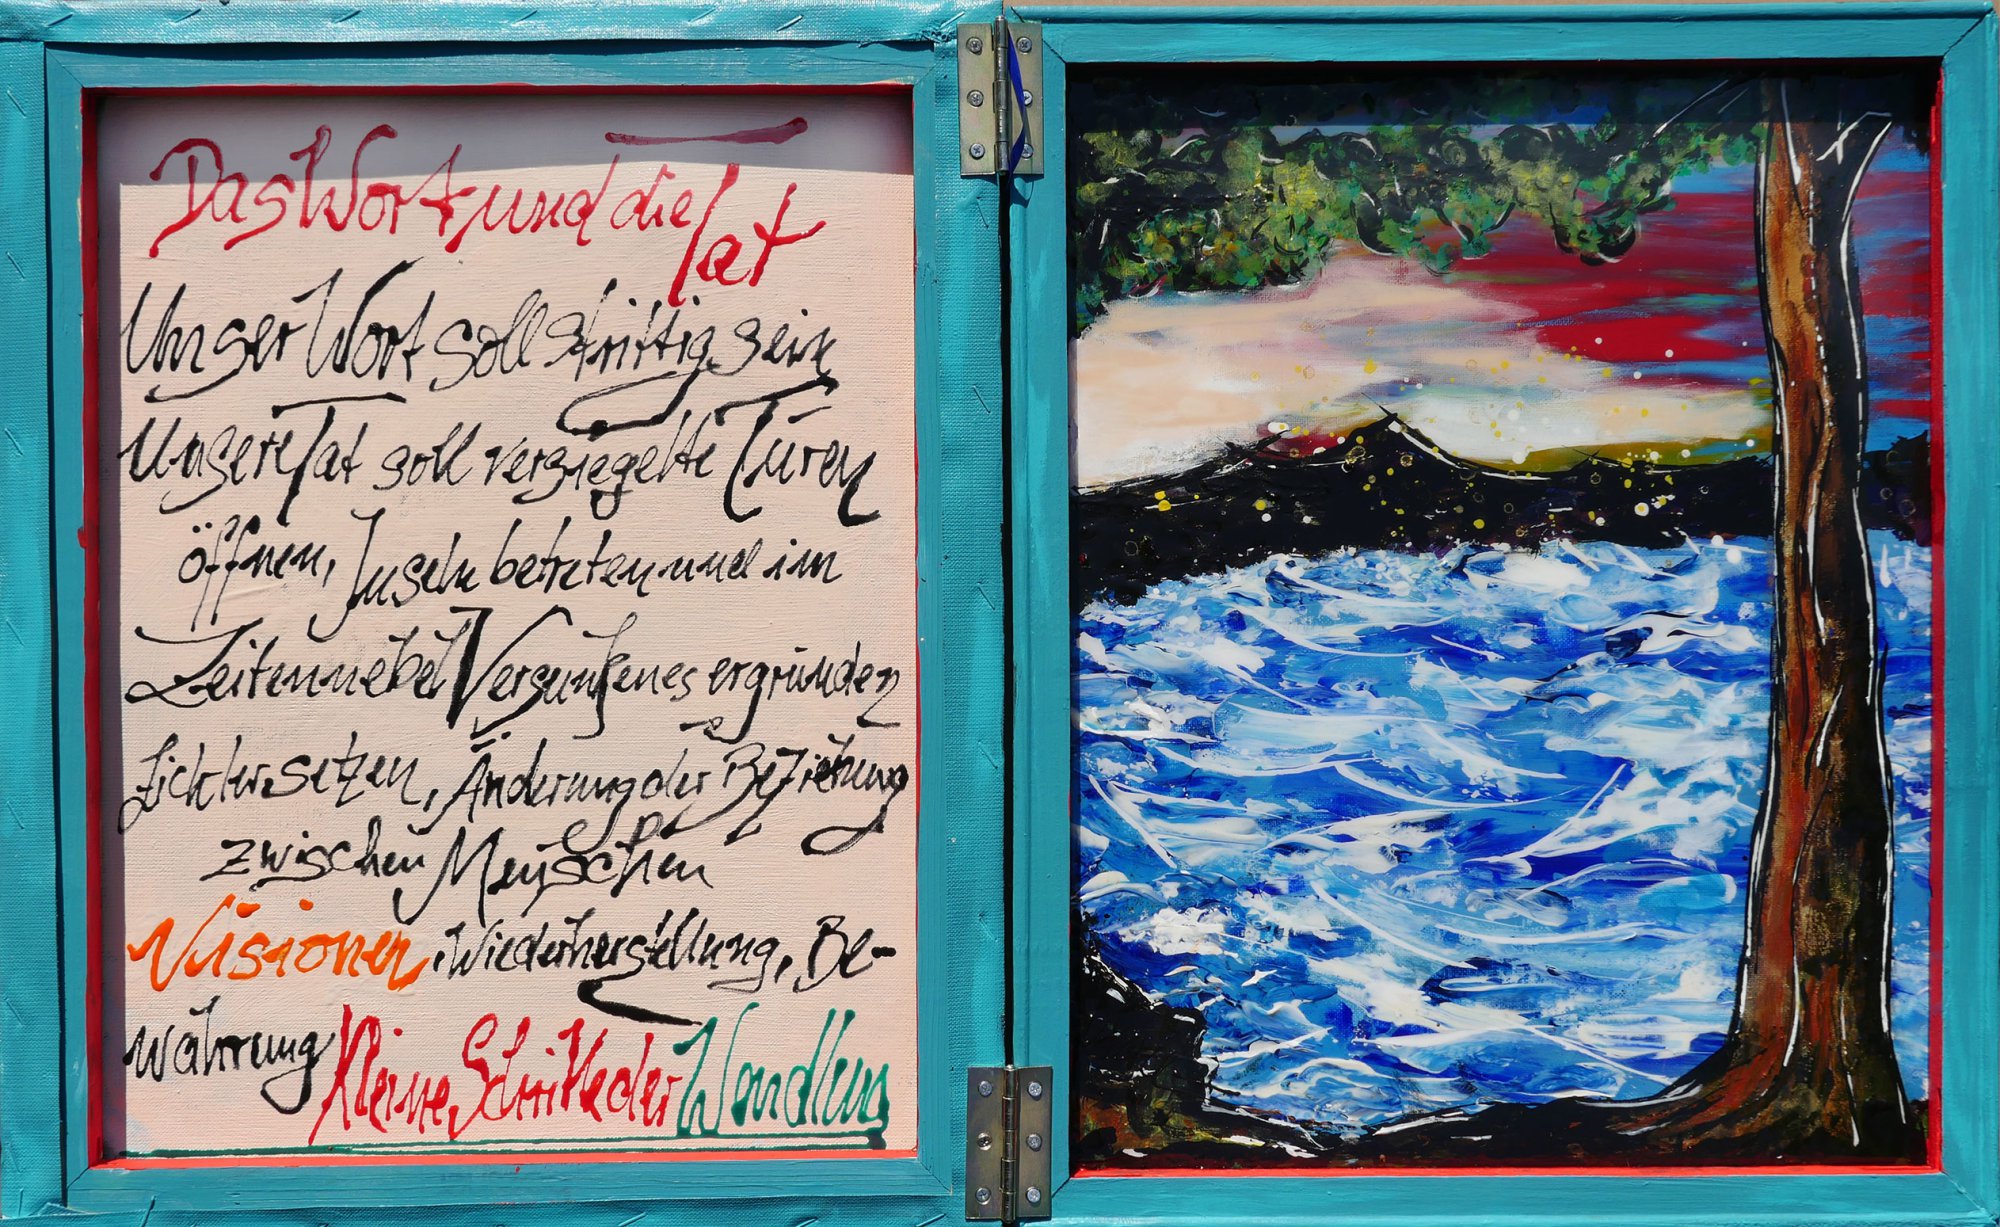 Das Wort und die Tat
Unser Wort soll strittig sein
Unsere Tat soll versiegelte Türen
öffnen, Inseln betreten und im
Zeitennebel Versunkenes ergründen
Lichter setzen, Änderung der Beziehung
zwischen Menschen
Visionen, Wiederherstellung, Be-
währung Kleine Schritte der Wandlung